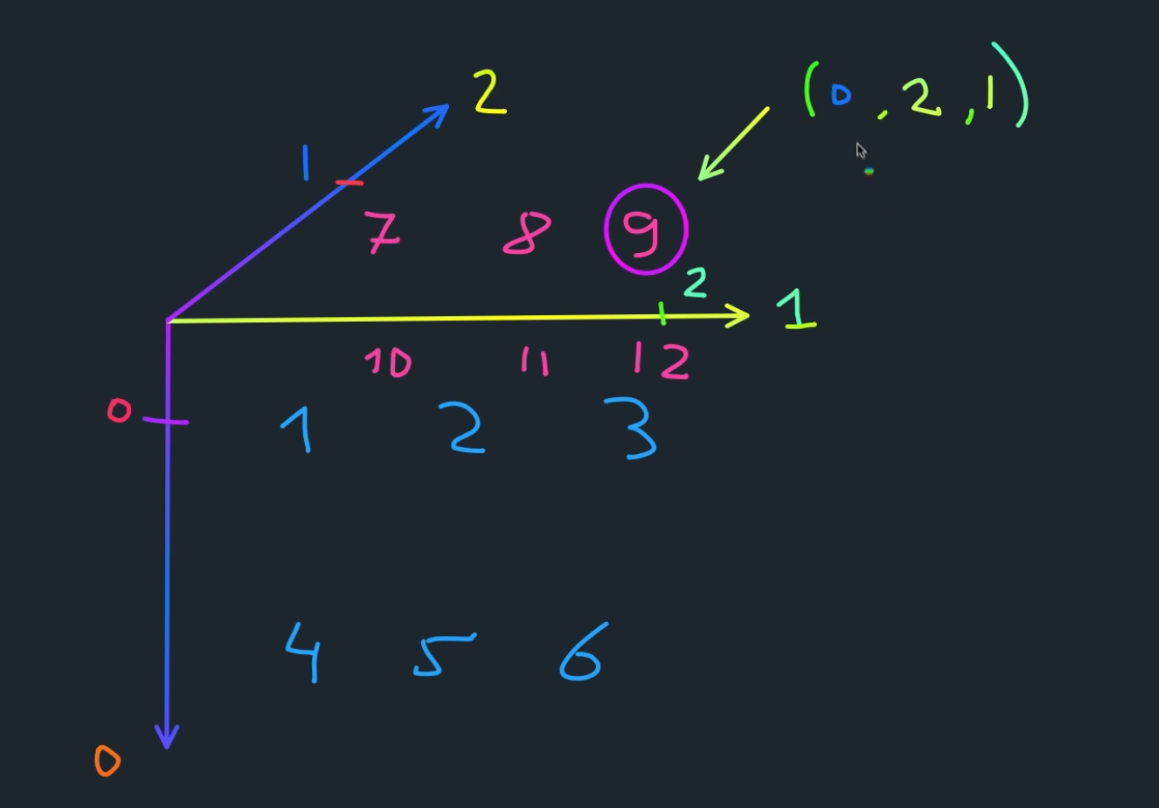 2
(0, 2, 1)
1
7 8 9
2
1
10 11 12
0
1 2 3
4 5 6
0